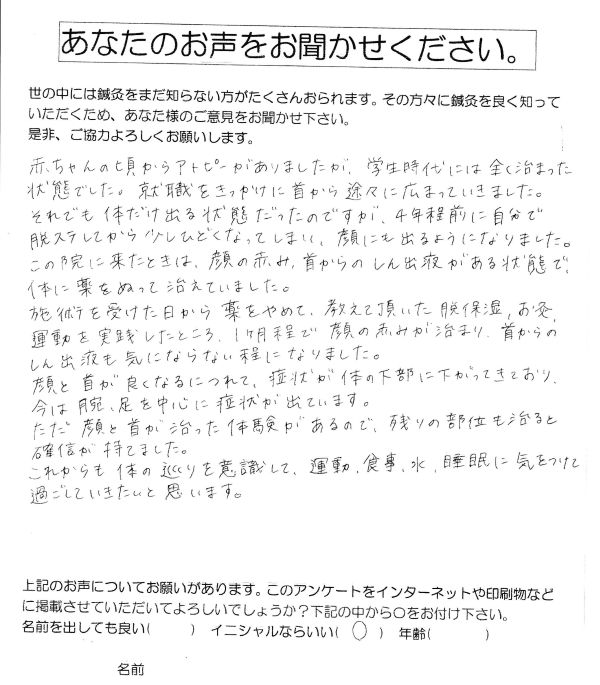 あなたのお声をお聞かせください。
世の中には鍼灸をまだ知らない方がたくさんおられます。その方々に鍼灸を良く知って
いただくため、あなた様のご意見をお聞かせ下さい。
是非、ご協力よろしくお願いします。
赤ちゃんの頃からアトピーがありましたが、学生時代には全く治まった
状態でした。就職をきっかけに首から途々に広まっていきました。
それでも体だけ出る状態だったのですが、4年程前に自分で
脱ステしてから少しひどくなってしまい、顔にも出るようになりました。
この院に来たときは、顔の赤み、首からのしん出液がある状態で、
体に薬をぬって治えていました。
施術を受けた日から薬をやめて、教えて頂いた脱保湿、お灸、
運動を実践したところ、1ヶ月程で顔の赤みが治まり、首からの
しん出液も気にならない程になりました。
顔と首が良くなるにつれて、症状が体の下部に下がってきており、
今は腕、足を中心に症状が出ています。
ただ顔と首が治った体験があるので、残りの部位も治ると
確信が持てました。
これからも体の巡りを意識して、運動、食事、水、睡眠に気をつけて
過ごしていきたいと思います。
上記のお声についてお願いがあります。このアンケートをインターネットや印刷物など
に掲載させていただいてよろしいでしょうか?下記の中から○をお付け下さい。
名前を出しても良い(　　) イニシャルならいい( ○ ) 年齢(　　)
名前